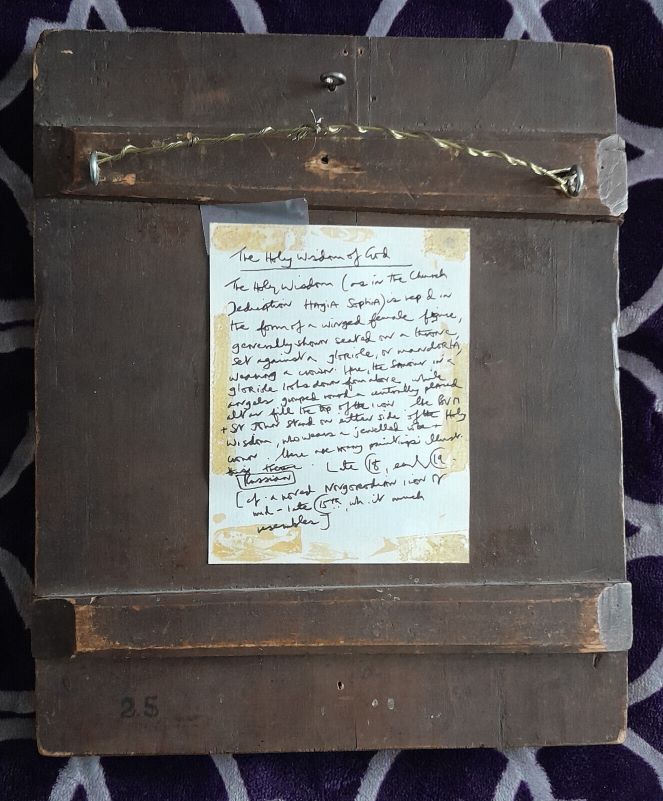 The Holy Wisdom of God
The Holy Wisdom (as in the Church
Dedication HAGIA SOPHIA) is rep'd in
the form of a winged female figure,
generally shown seated on a throne,
set against a gloriole, or mandorla,
wearing a crown. Here, the Saviour in a
gloriole looks down from above, while
angels grouped round a centrally placed
altar fill the top of the icon. The BVM
+ St John stand on either side of the Holy
Wisdom, who wears a jewelled robe +
crown. There are many paintings illustr.
Late 18, early 19.
Russian
[cf. a noted Novgorodian icon of
mid-late 15th, wh. it much
resembles]
25